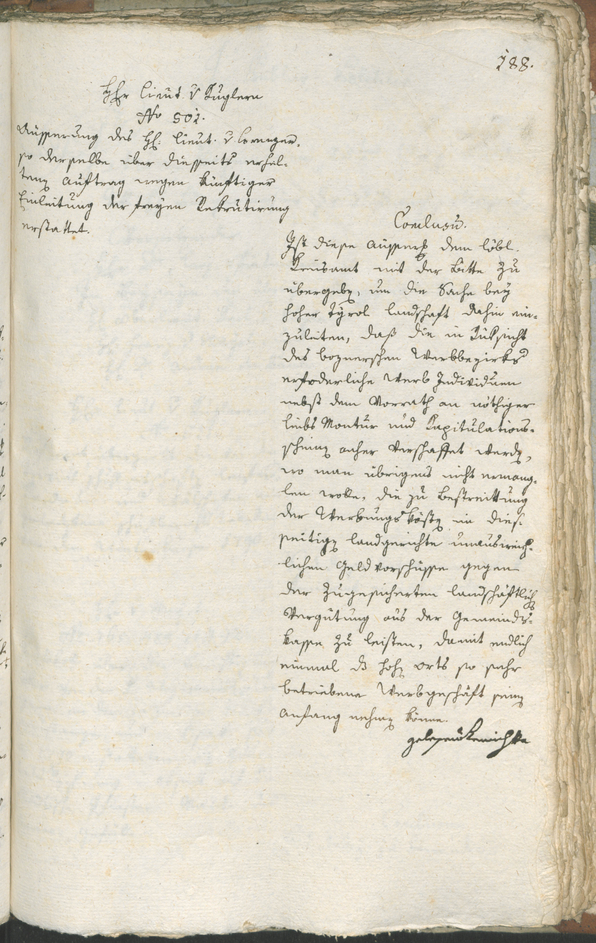 188.
Hr Lieut. v Kuglern
No 501.
Äusserung des H. Lieut. v Lorenzer,
so derselbe über diesseits erhal-
tenen Auftrag wegen künftiger
Einleitung der freyen Rekrutirung
erstattet.
Conclusū.
Ist diese Äusserung dem löbl.
Kreisamt mit der Bitte zu
übergeben, um die Sache bey
hoher Tyrol. Landschaft dahin ein-
zuleiten, daß die in Rüksicht
des boznerschen Werbbezirks
erforderliche Werb Individuen
nebst dem Vorrath an nöthiger
Leibs Montur und Kapitulations-
scheinen anher verschaffet werden,
wo man übrigens nicht ermang-
len wolle, die zu Bestreittung
der Werbungskösten im dies-
seitigen Landgerichte unausweich-
lichen Geldvorschüsse gegen
der zugesicherten landschäftlichen
Vergütung aus der Gemeinds-
kasse zu leisten, damit endlich
einmal das hohen Orts so sehr
betriebene Werbgeschäft seinen
Anfang nehmen könne.